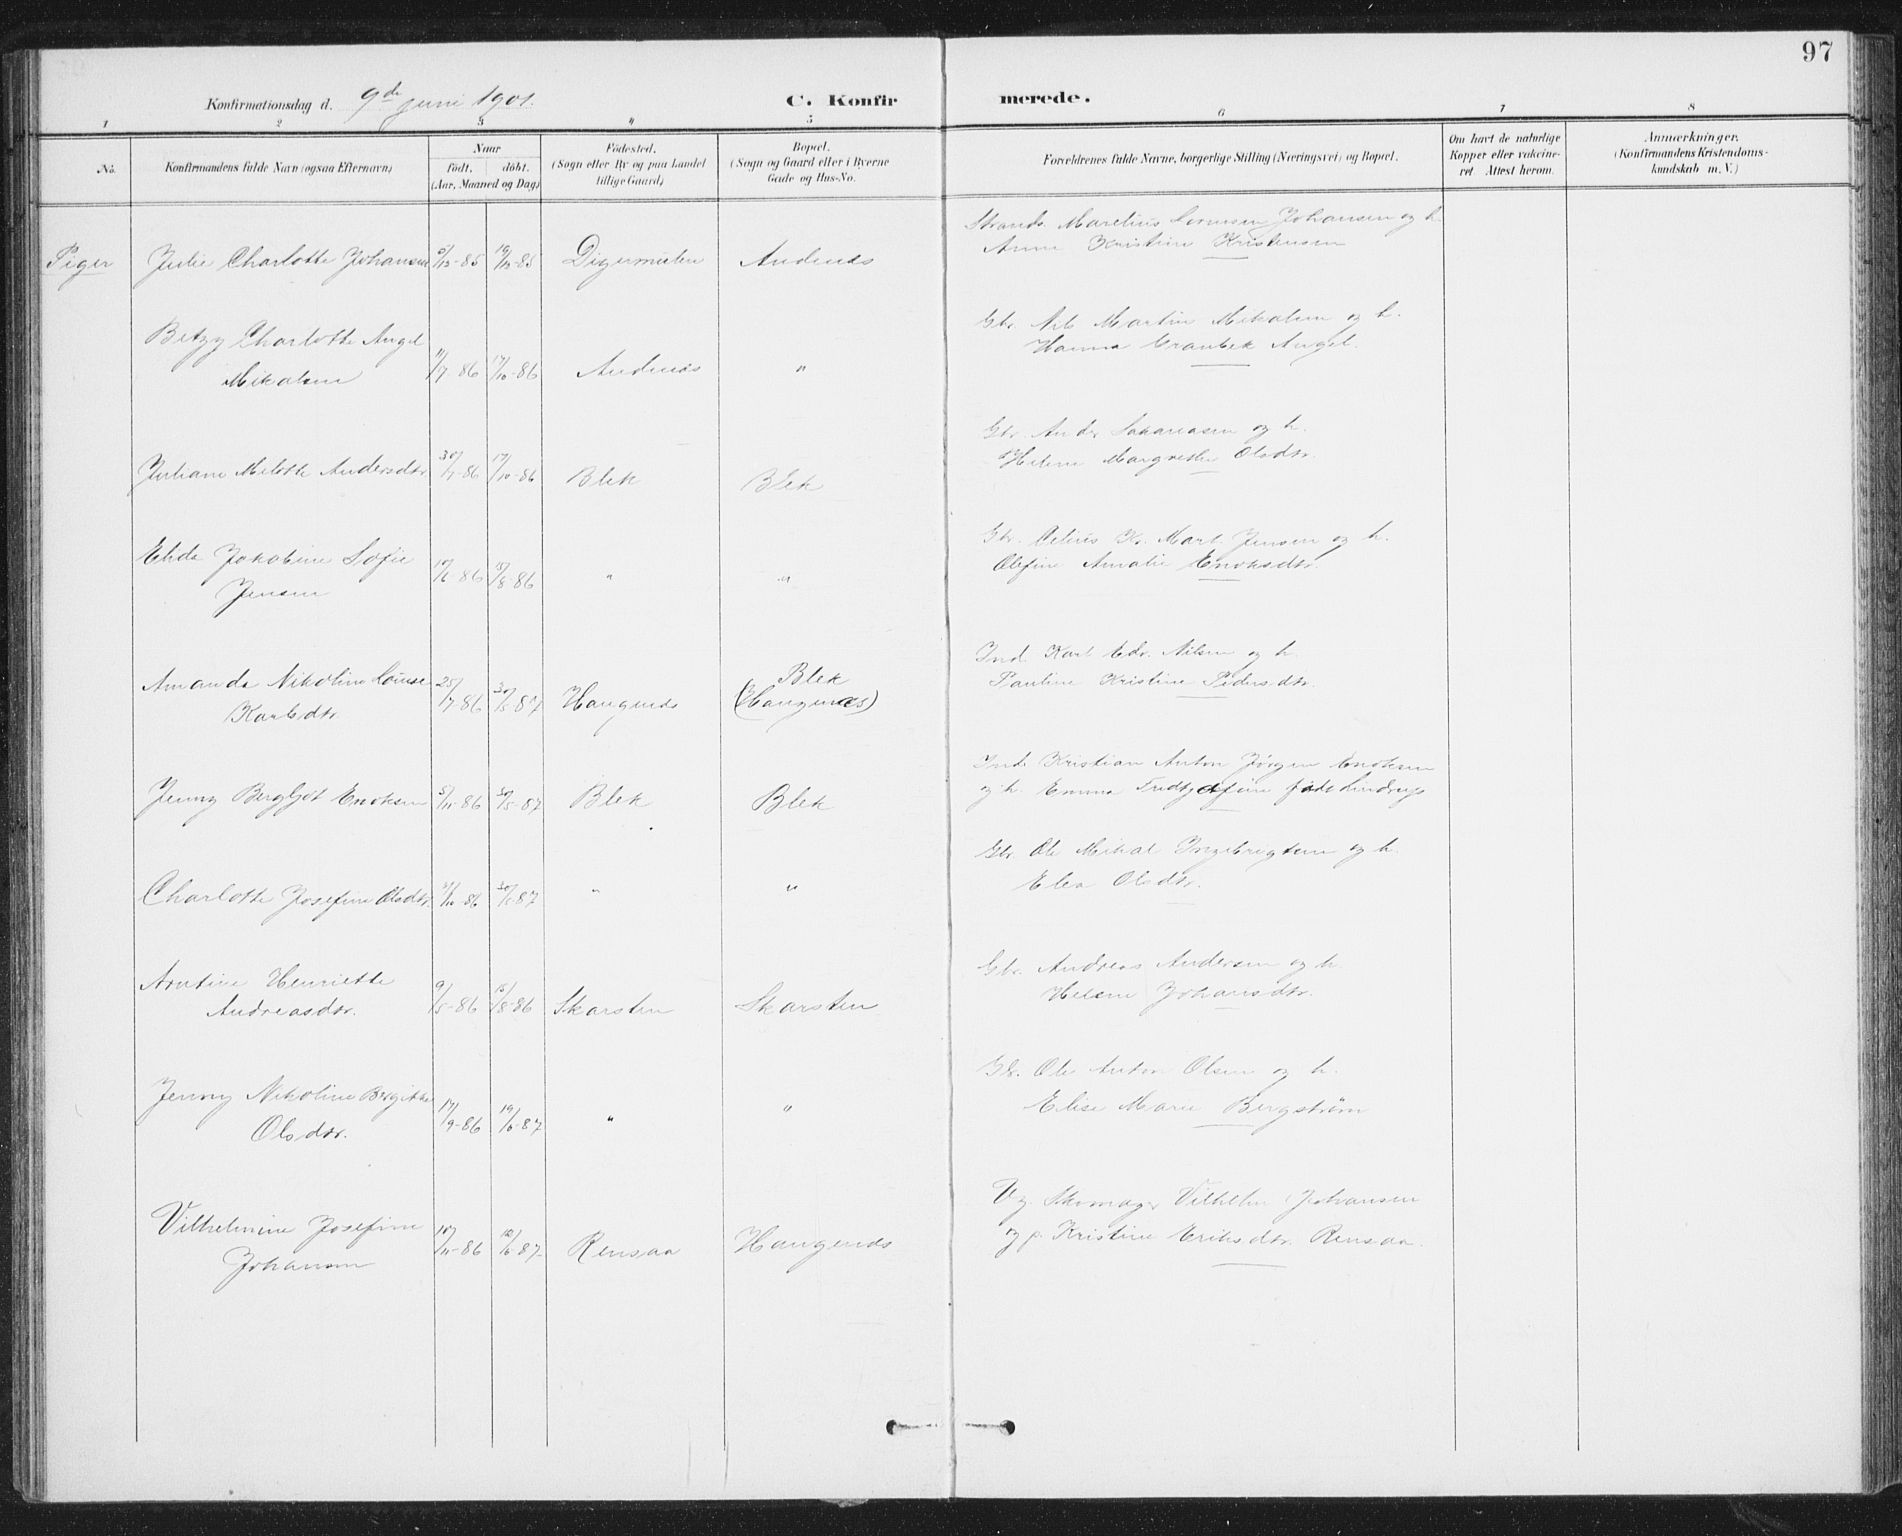 97
Konfirmationsdag d. 9de juni 1901. C. Konfirmerede.
1 2 3 4 5 6 7 8
No.
Konfirmandens fulde Navn (ogsaa Efternavn)
Naar
födt. döbt.
(Aar, Maaned og Dag)
Födested.
(Sogn eller By og paa Landet
tillige Gaard)
Bopæl.
(Sogn og Gaard eller i Byerne
Gade og Hus-No.
Forældrenes fulde Navne, borgerlige Stilling (Næringsvei) og Bopæl.
Om havt de naturlige
Kopper eller vakcine-
ret Attest herom.
Anmærkninger.
(Konfirmandens Kristendoms-
kundskab m. V.)
Strands. Marelius Johansen og h.
Anne Kristine Kristensen
Piger Julie Charlotte Johansen 5/12-85 19/12-85 Digermulen Andenæs
Gbr. Nils Martin Mikalsen og h.
Hanna Angel.
Betzy Charlotte Angel
Mikalsen 11/7-86 17/10-86 Andenæs "
Gbr. Anders og h.
Helene Margrethe Olsdtr.
Juliane Andersdtr. 30/7-86 17/10-86 Blek Blek
Gbr. Kr. Mart. Jensen og h.
Olefine Amalie Enoksdtr.
Jakobine Sofie
Jensen 17/6-86 15/8-86 " "
Ind. Karl Edv. Nilsen og h.
Pauline Kristine Pedersdtr.
Amanda Nikoline Louise
Karlsdtr. 25/7-86 30/5-87 Haugnes Blek
(Haugnæs)
Ind. Kristian Anton Jörgen Enoksen
og h. Emma født
Jenny Bergljot Enoksen 5/11-86 30/5-87 Blek Blek
Gbr. Ole Mikal Ingebrigtsen og h.
Elea Olsdtr.
Charlotte Josefine Olsdtr. 30/5-87 " "
Gbr. Andreas Andersen og h.
Helene Johansdtr.
Henriette
Andreasdtr. 9/5-86 15/8-86 Skarsten Skarsten
Ole Anton Olsen og h.
Elise Marie Bergström
Jenny Nikoline Bergitte
Olsdtr. 17/9-86 19/6-87 " "
Vilhelm Johansen
og p. Kristine Eriksdtr. Rensaa.
Vilhelmine Josefine
Johansen 10/11-86 Rensaa Haugnes